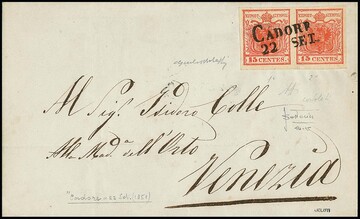 CADORE
22 SET.
15 CENTES. 15 CENTES.
All Sigr. Isidoro Colle
Alla Mada. dell'Orto
Venezia
"Cadore - 22 Set. (1851)